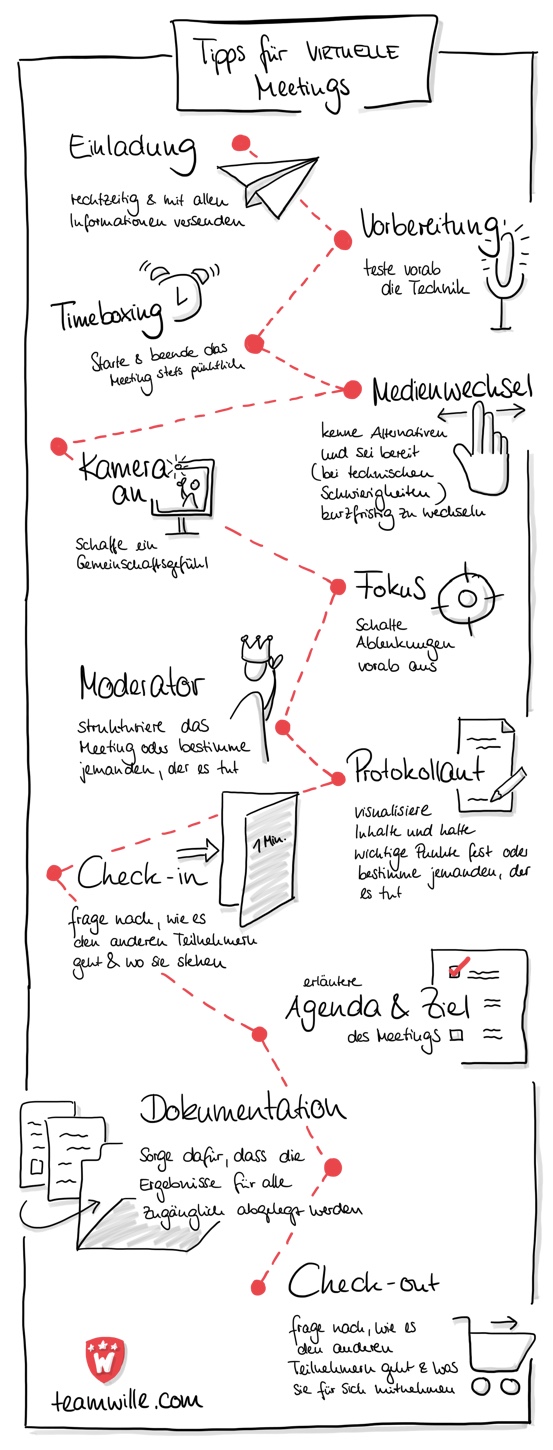 Tipps für VIRTUELLE
Meetings
Einladung
rechtzeitig & mit allen
Informationen versenden
Vorbereitung
teste vorab
die Technik
Timeboxing
Starte & beende das
Meeting stets pünktlich
Medienwechsel
kenne Alternativen
und sei bereit
(bei technischen
Schwierigkeiten)
kurzfristig zu wechseln
Kamera
an
Schaffe ein
Gemeinschaftsgefühl
Fokus
Schalte
Ablenkungen
vorab aus
Moderator
strukturiere das
Meeting oder bestimme
jemanden, der es tut
Protokollant
visualisiere
Inhalte und halte
wichtige Punkte fest oder
bestimme jemanden, der
es tut
1 Min.
Check-in
frage nach, wie es
den anderen Teilnehmern
geht & wo sie stehen
erläutere
Agenda & Ziel
des Meetings
Dokumentation
Sorge dafür, dass die
Ergebnisse für alle
zugänglich abgelegt werden
Check-out
frage nach, wie es
den anderen
Teilnehmern geht & was
Sie für sich mitnehmen
W
teamwille.com